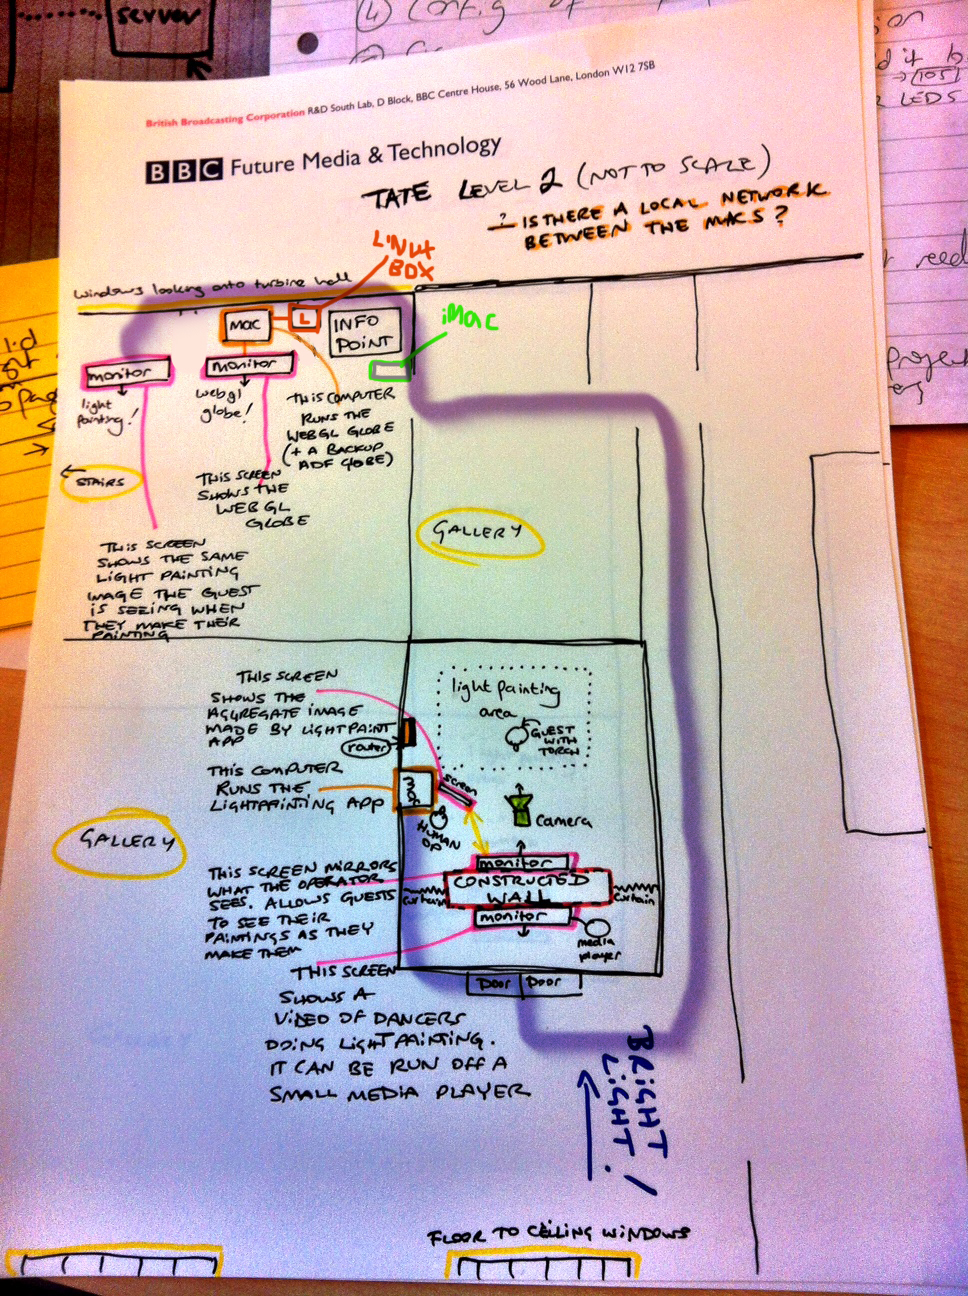 server
(4) Config of
British Broadcasting Corporation R&D South Lab, D Block, BBC Centre House, 56 Wood Lane, London W12 7SB
BBC Future Media & Technology
TATE LEVEL 2 (NOT TO SCALE)
? IS THERE A LOCAL NETWORK
BETWEEN THE MACS?
LINUX
BOX
windows looking onto turbine hall
MAC
L
INFO
POINT
iMac
monitor
monitor
light
painting!
webgl
globe!
THIS COMPUTER
RUNS THE
WEBGL GLOBE
(+ A BACKUP
ADF GLOBE)
STAIRS
THIS SCREEN
SHOWS THE
WEB GL
GLOBE
THIS SCREEN
SHOWS THE SAME
LIGHT PAINTING
IMAGE THE GUEST
IS SEEING WHEN
THEY MAKE THEIR
PAINTING
GALLERY
THIS SCREEN
SHOWS THE
AGGREGATE IMAGE
MADE BY LIGHTPAINT
APP
router
light painting
area
GUEST
WITH
TORCH
THIS COMPUTER
RUNS THE
LIGHTPAINTING APP
MAC
screen
HUMAN
OP
camera
GALLERY
THIS SCREEN MIRRORS
WHAT THE OPERATOR
SEES. ALLOWS GUESTS
TO SEE THEIR
PAINTINGS AS THEY
MAKE THEM
monitor
CONSTRUCTED
WALL
curtain
curtain
monitor
media
player
THIS SCREEN
SHOWS A
VIDEO OF DANCERS
DOING LIGHTPAINTING.
IT CAN BE RUN OFF A
SMALL MEDIA PLAYER
Door Door
BRIGHT
LIGHT!
FLOOR TO CEILING WINDOWS
LEDS
need
project